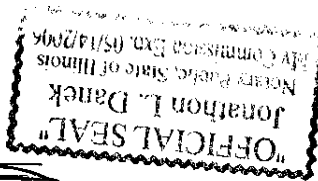 "OFFICIAL SEAL"
Jonathon L. Danek
Notary Public, State of Illinois
My Commission Exp. 05/14/2006